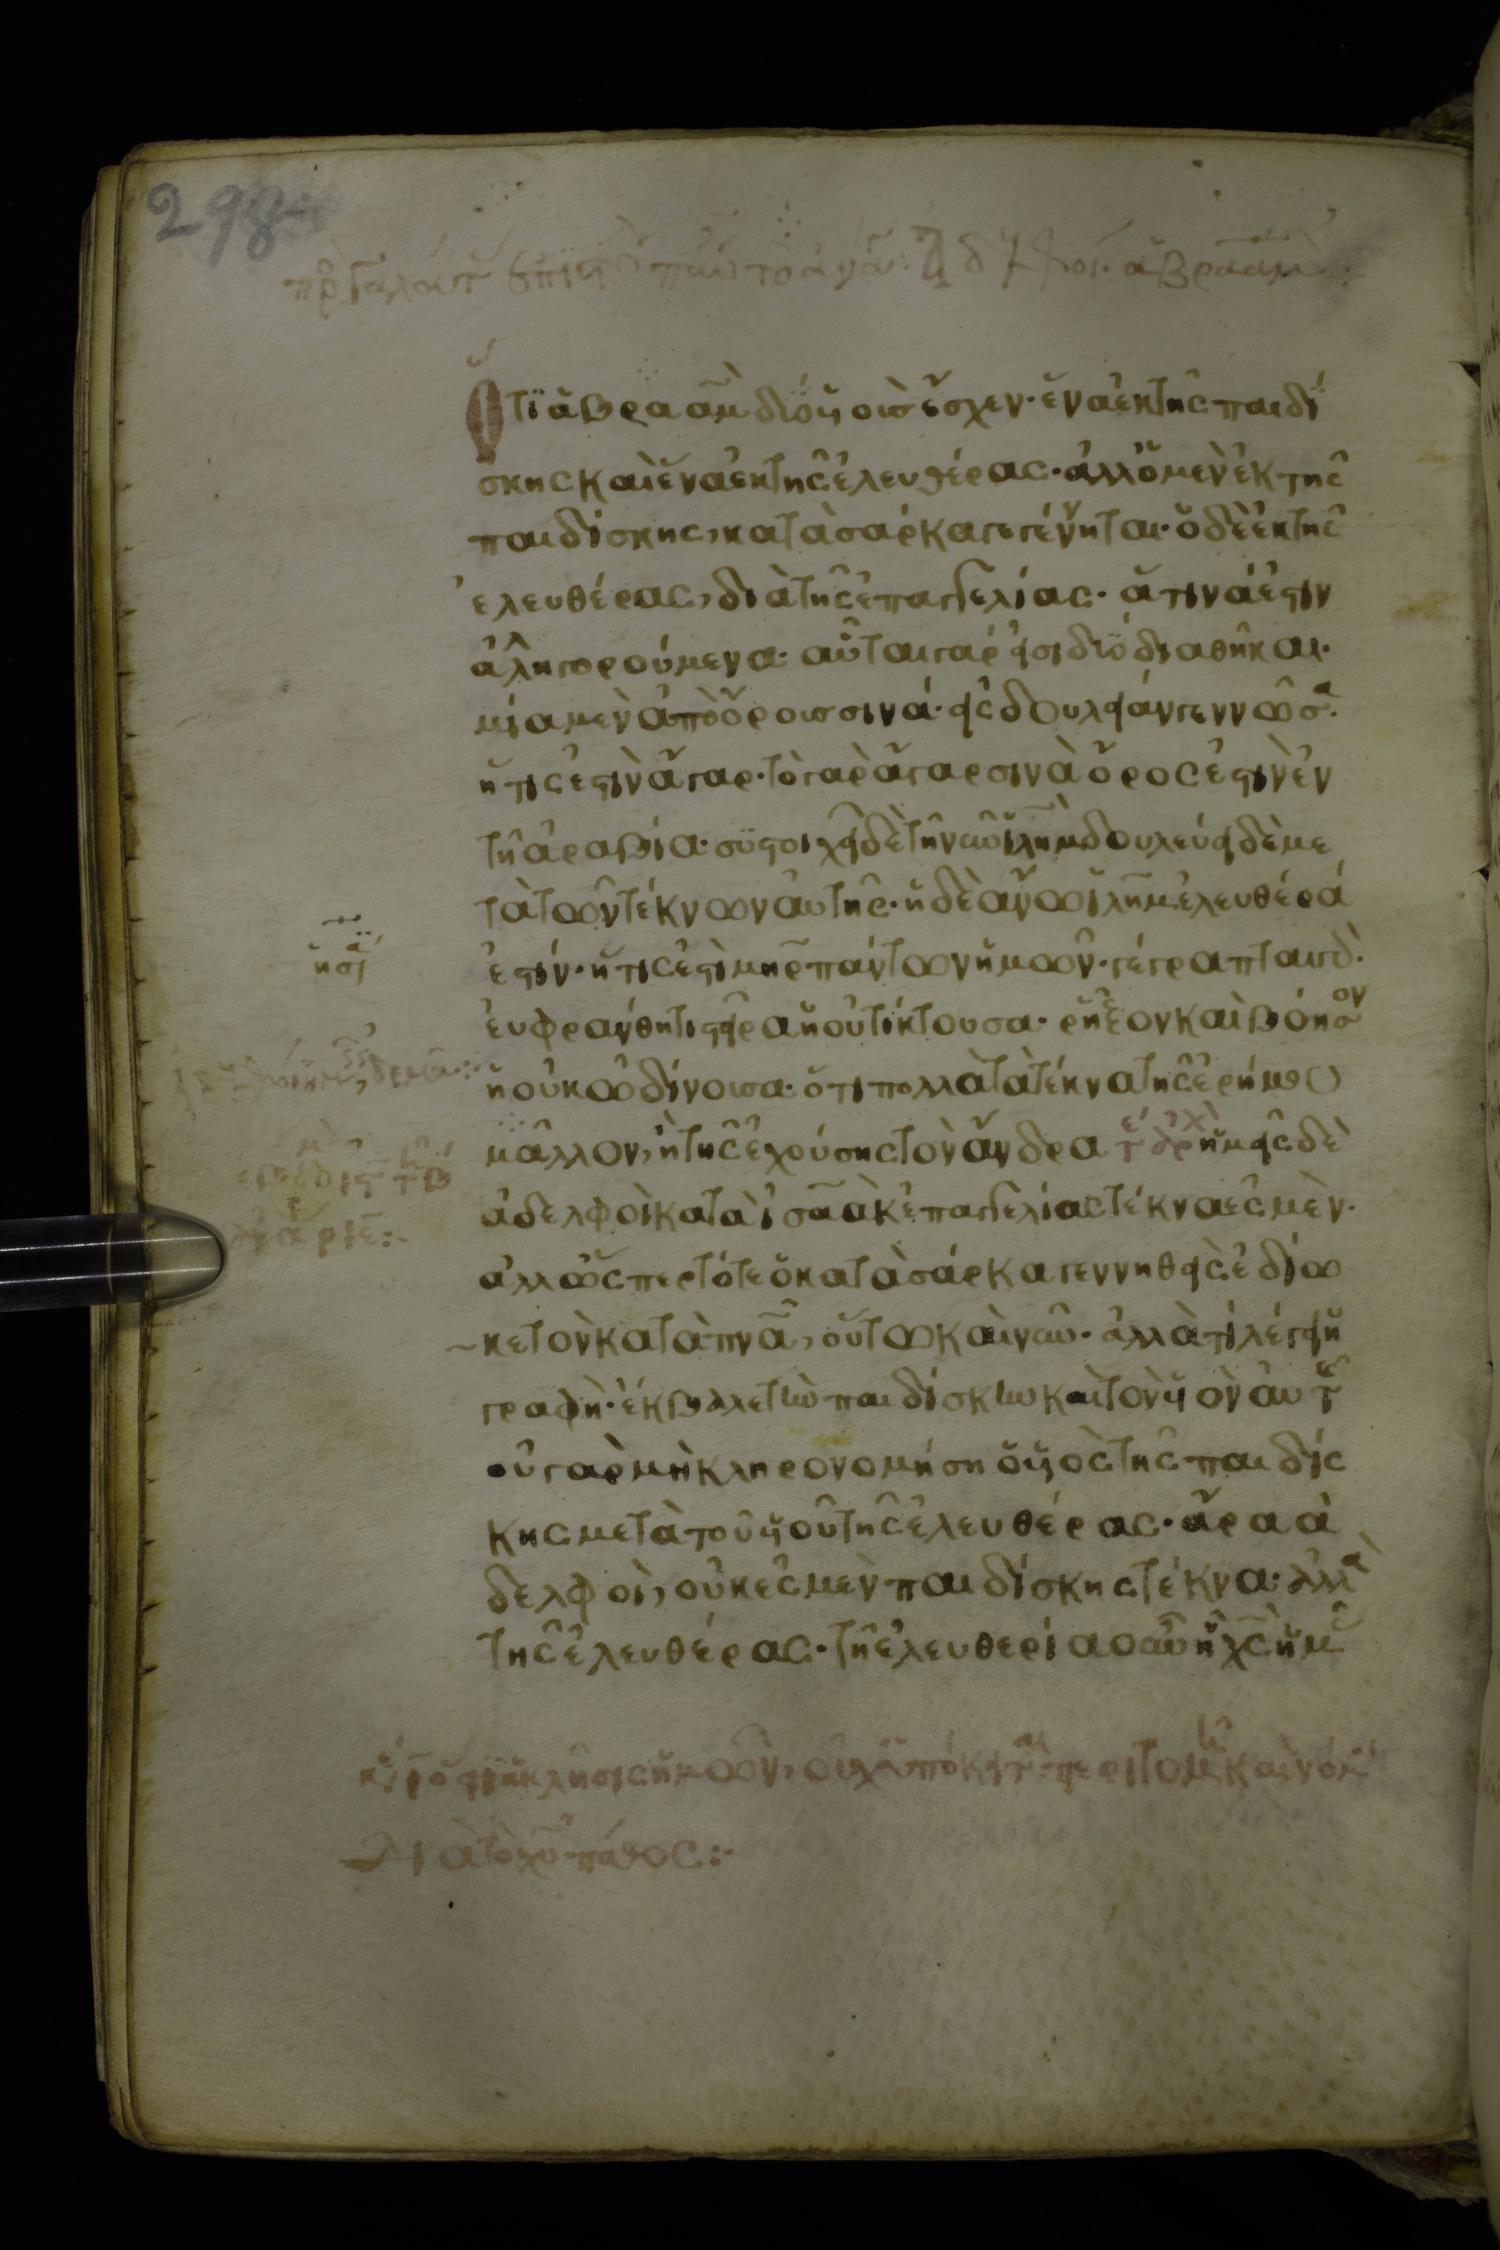 298
ὅτι ἀβραὰμ δύο υἱοὺς ἔσχεν· ἕνα ἐκ τῆς παιδί
σκης καὶ ἕνα ἐκ τῆς ἐλευθέρας· ἀλλ ὁ μὲν ἐκ τῆς
παιδίσκης, κατὰ σάρκα γεγέννηται· ὁ δὲ ἐκ τῆς
ἐλευθέρας, διὰ τῆς ἐπαγγελίας· ἅτινά ἐστιν
ἀλληγορούμενα· αὗται γάρ εἰσι δύο διαθῆκαι·
μία μὲν ἀπὸ ὄρους σινά· εἰς δουλείαν γεννῶσα·
ἥτις ἐστὶν ἄγαρ· τὸ γὰρ ἄγαρ σινὰ ὄρος ἐστὶν ἐν
τῇ ἀραβία· συστοιχεῖ δὲ τῇ νῦν ἰλημ δουλεύει δὲ με
τὰ τῶν τέκνων αὐτῆς· ἡ δὲ ἄνω ἰλημ ἐλευθέρα
ἐστίν· ἥτις ἐστὶ μηρ πάντων ἡμῶν· γέγραπται γὰρ·
εὐφράνθητι στεῖρα ἡ οὐ τίκτουσα· ρῆξον καὶ βόησον
ἡ οὐκ ὠδίνουσα· ὅτι πολλὰ τὰ τέκνα τῆς ἐρήμου
μᾶλλον, ἢ τῆς ἐχούσης τὸν ἄνδρα ἡμεῖς δὲ
ἀδελφοὶ κατὰ ἰσαὰκ ἐπαγγελίας τέκνα ἐσμὲν·
ἀλλ ὥσπερ τότε ὁ κατὰ σάρκα γεννηθεὶς ἐδίω
κε τὸν κατὰ πνα, οὕτω καὶ νῦν· ἀλλὰ τί λέγει ἡ
γραφὴ· ἔκβαλε τὴν παιδίσκην καὶ τὸν υἱὸν αὐτῆς
οὐ γὰρ μὴ κληρονομήση ὁ υἱὸς τῆς παιδίς
κης μετὰ τοῦ υἱοῦ τῆς ἐλευθέρας· ἄρα ἀ
δελφοὶ, οὐκ ἐσμὲν παιδίσκης τέκνα· ἀλλὰ
τῆς ἐλευθέρας· τῇ ἐλευθερία οὖν ᾗ χς ἡμᾶς
διὰ τὸ χυ πάθος: